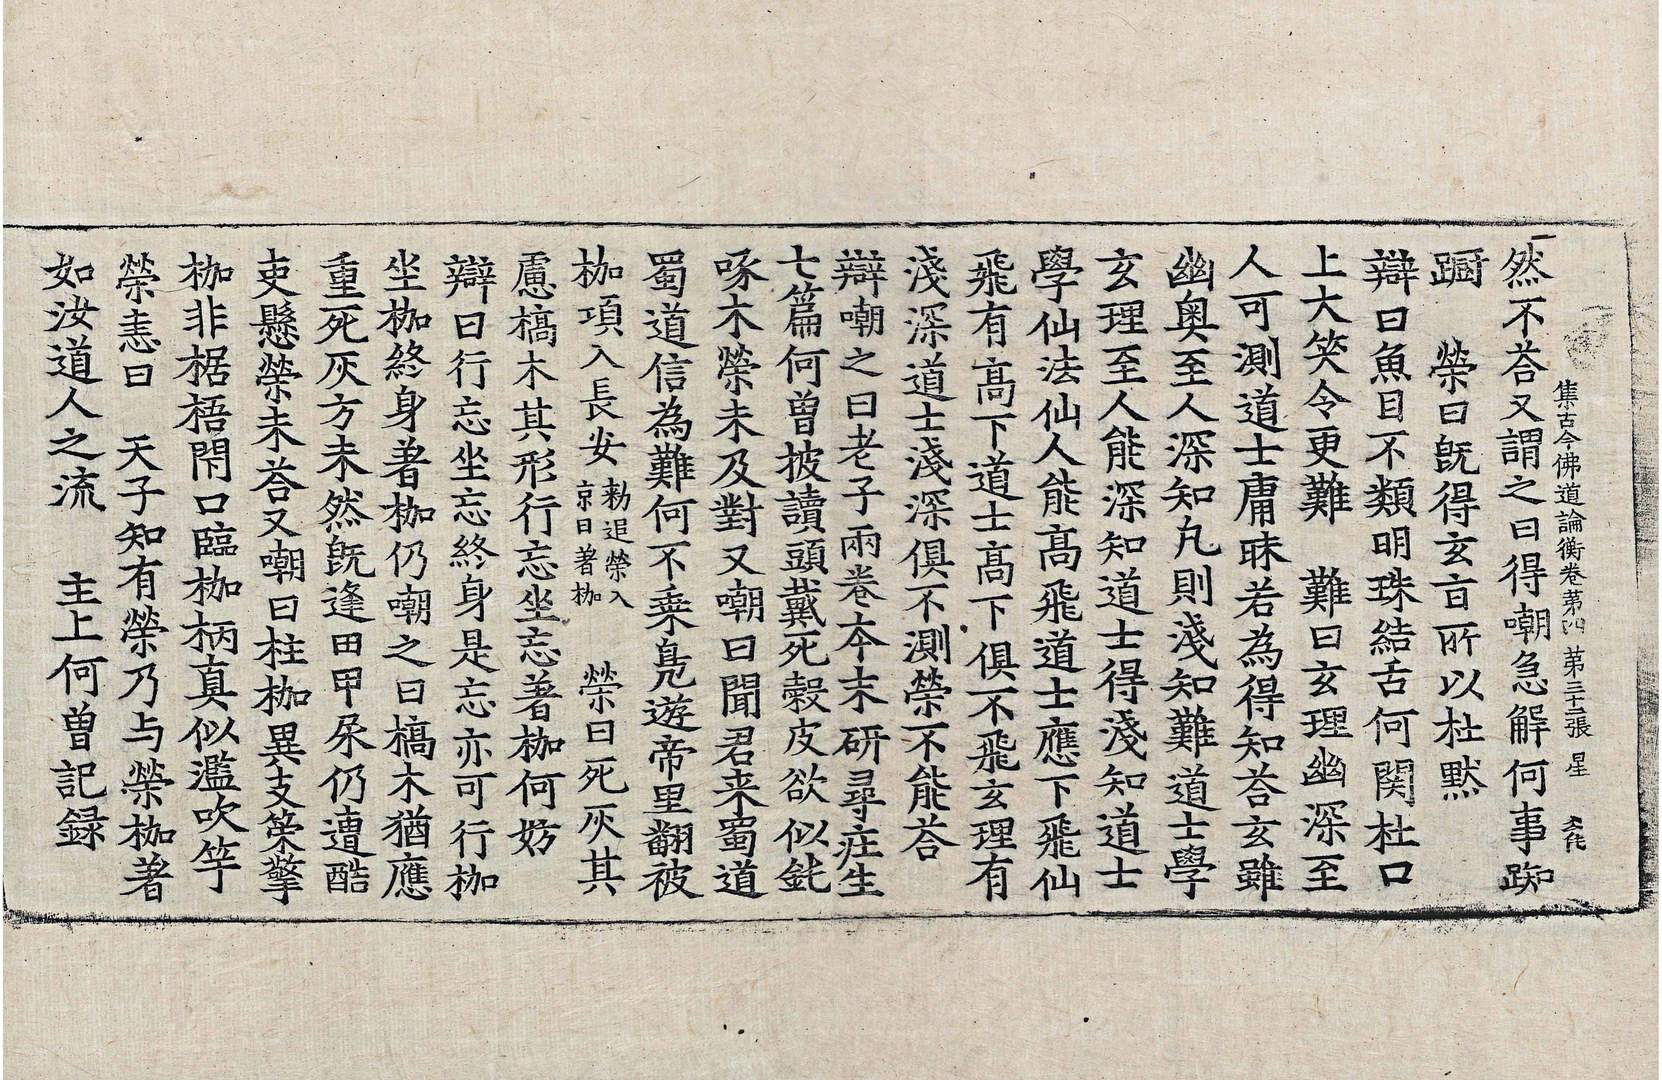 集古今佛道論衡卷第四　第三十二張　星
然不荅又謂之曰得嘲急解何事踟
蹰　榮曰旣得玄言所以杜默
辯曰魚目不類明珠結舌何関杜口
上大笑令更難　難曰玄理幽深至
人可測道士庸昧若為得知荅玄雖
幽奥至人深知凡則淺知難道士學
玄理至人能深知道士得淺知道士
學仙法仙人能髙飛道士應下飛仙
飛有髙下道士髙下俱不飛玄理有
淺深道士淺深俱不測榮不能荅
辯嘲之曰老子兩卷夲末研尋庄生
七篇何曽披讀頭戴死穀皮欲似鈍
啄木榮未及對又嘲曰聞君来蜀道
蜀道信為難何不乗凫遊帝里翻被
枷項入長安勑追榮入京日著枷　榮曰死灰其
慮槁木其形行忘坐忘著枷何妨
辯曰行忘坐忘終身是忘亦可行枷
坐枷終身著枷仍嘲之曰槁木猶應
重死灰方未然旣逢田甲尿仍遭酷
吏懸榮未荅又嘲曰柱枷異支䇶擎
枷非椐梧閇口臨枷柄真似濫吹竽
榮恚曰　天子知有榮乃与榮枷著
如汝道人之流　主上何曽記録